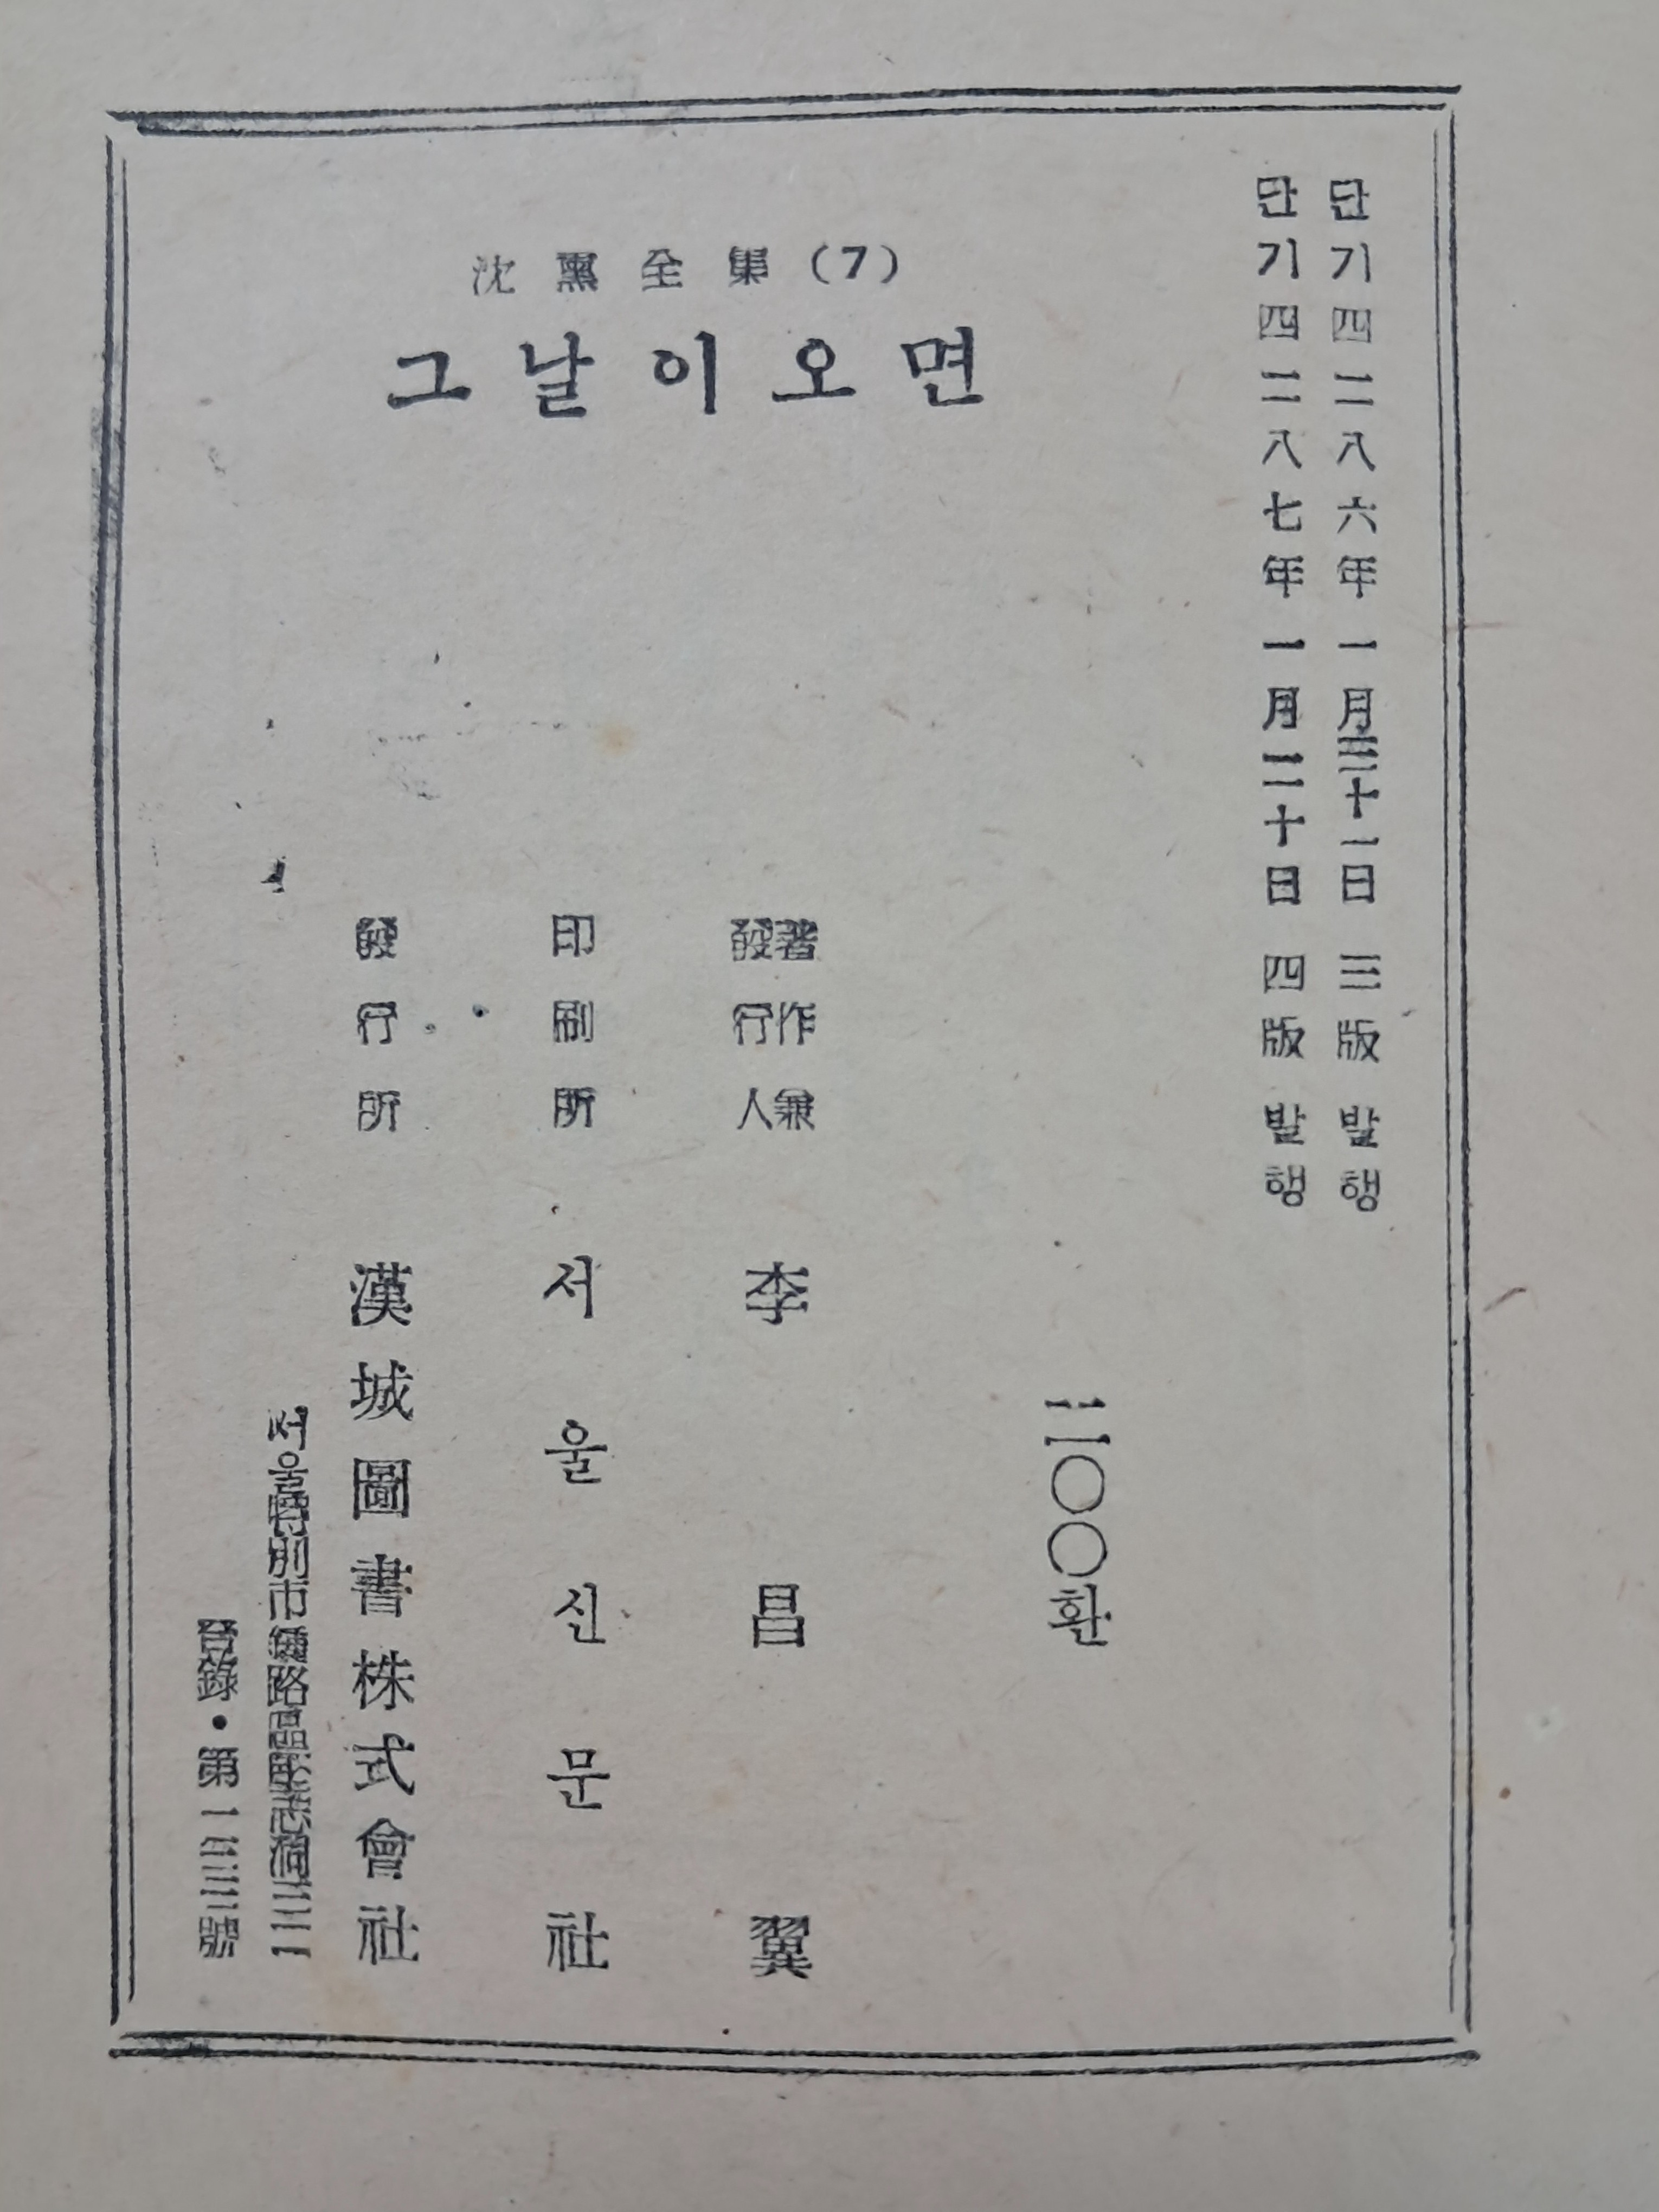 沈熏全集(7)
그날이오면
단기四二八六年一月三十一日 三版 발행
단기四二八七年一月二十日 四版 발행
二〇〇환
著作兼
發行人 李昌翼
印刷所 서울신문社
發行所 漢城圖書株式會社
서울特別市鍾路區堅志洞三二
登錄・第 號